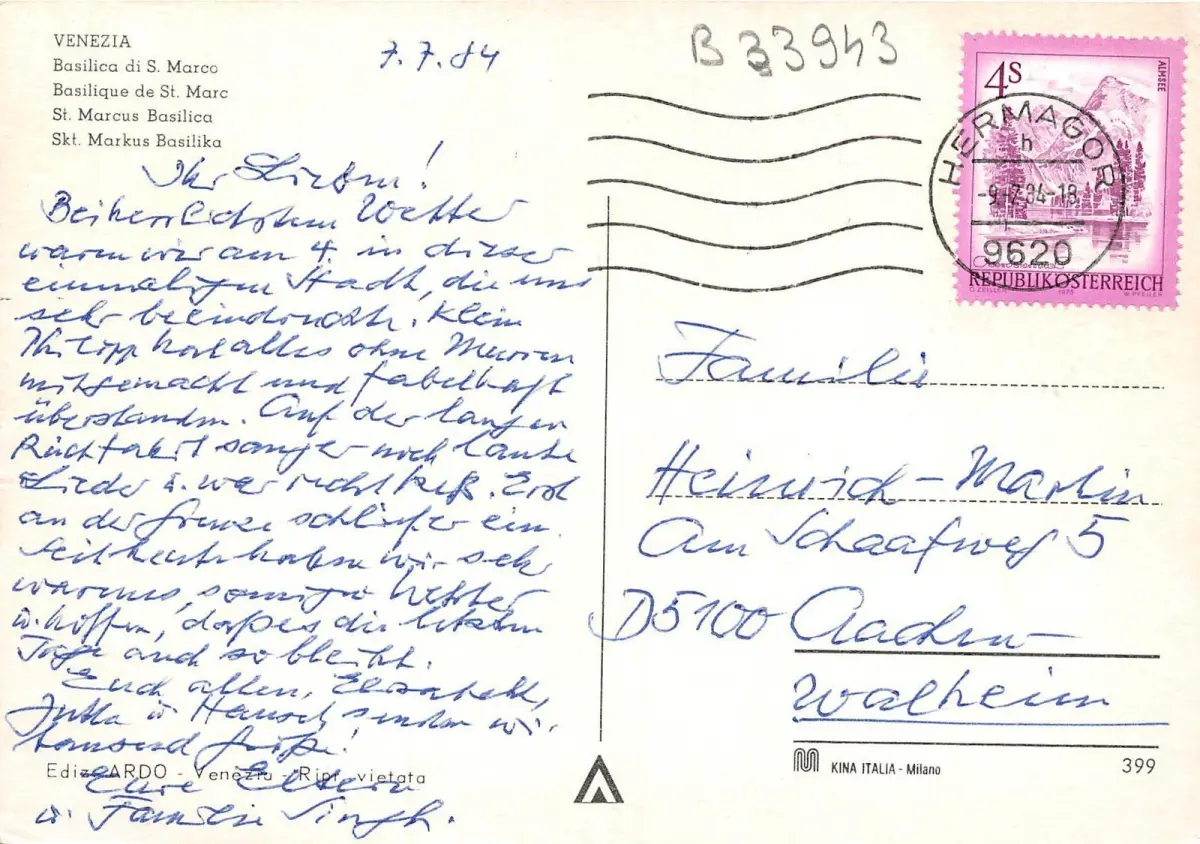 VENEZIA
Basilica di S. Marco
Basilique de St. Marc
St. Marcus Basilica
Skt. Markus Basilika
7.7.84
B 33943
4 S
ALMSEE
HERMAGOR
h
-9.-7.84-18
9620
REPUBLIK ÖSTERREICH
O. ZEILLER 1973 W. PFEILER
Ihr Lieben!
Bei herrlichstem Wetter
waren wir am 4. in dieser
einmaligen Stadt, die uns
sehr beeindruckte. Klein
Philipp hat alles ohne Murren
mitgemacht und fabelhaft
überstanden. Auf der langen
Rückfahrt sang er noch laute
Lieder u. war recht keß. Erst
an der Grenze schlief er ein.
Seit heute haben wir sehr
warmes, sonniges Wetter
u. hoffen, daß es die letzten
Tage auch so bleibt.
Euch allen, Elisabeth,
Jutta u. senden wir
tausend Grüße!
Eure Eltern
u. Familie Singh.
Familie
Heinrich-Martin
Am Schaafweg 5
D5100 Aachen-
Walheim
Ediz. ARDO - Venezia - Ripr. vietata
KINA ITALIA - Milano
399